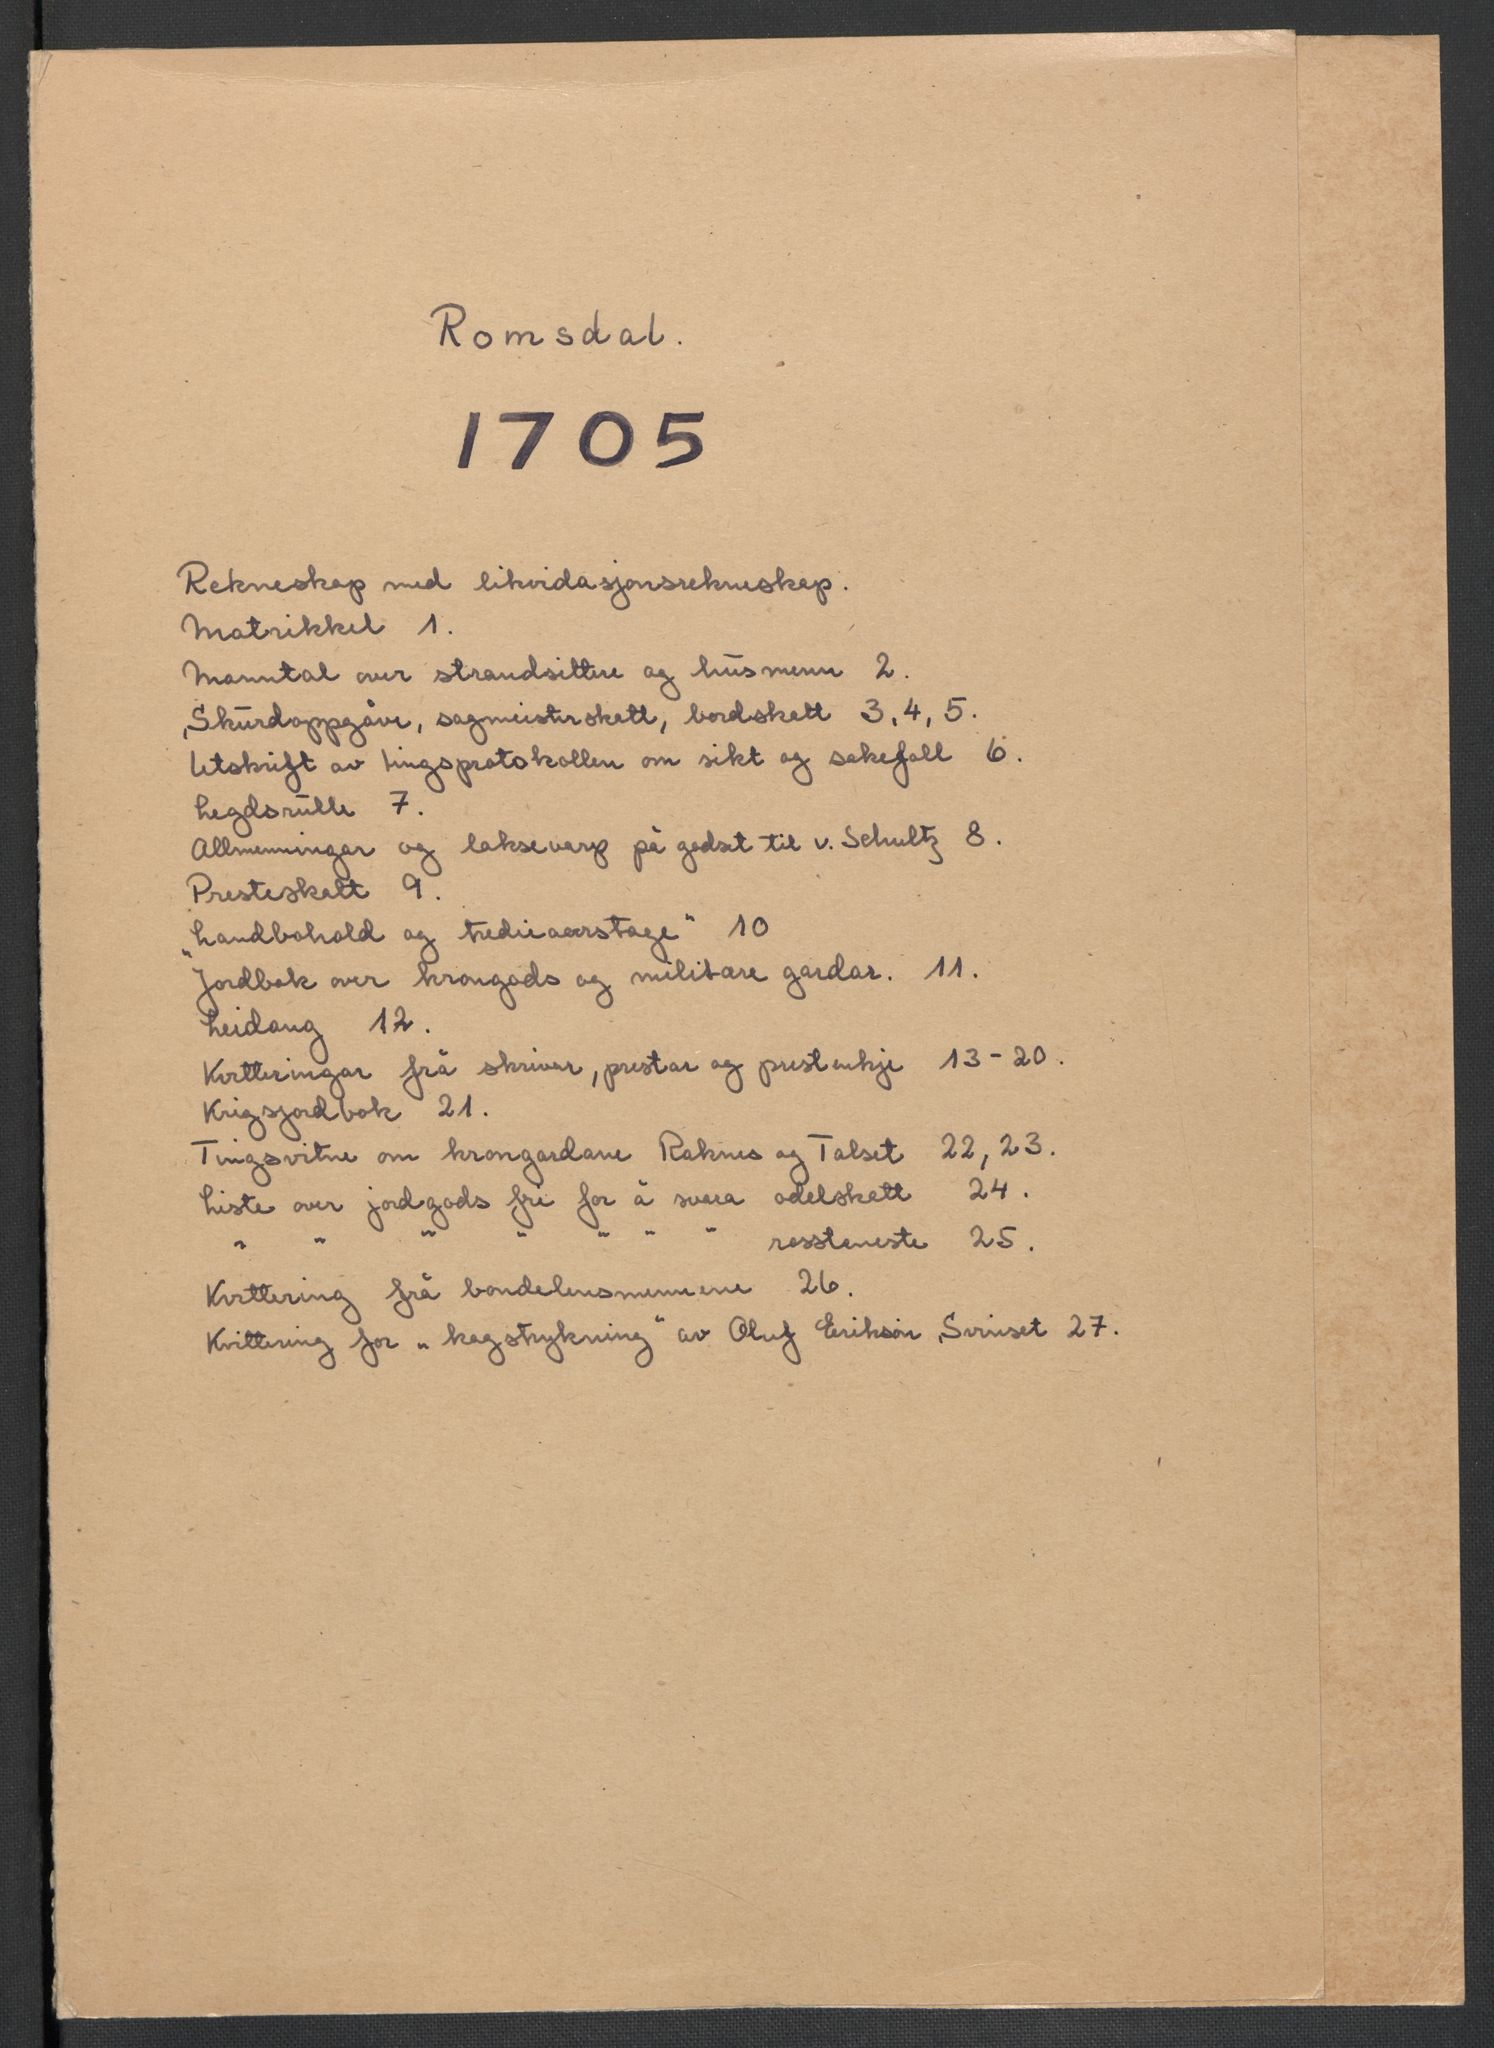 Romsdal.
1705
Rekneskap med likvidasjonsrekneskap.
Matrikkel 1.
Manntal over strandsittere og husmenn 2.
Skurdoppgåve, sagmeisterskatt, bordskatt 3, 4, 5.
Utskrift av tingsprotokollen om sikt og sakefall 6.
Legdsrulle 7.
Allmenningar og laksevarp på godset til v. Schultz 8.
Presteskatt 9.
„Landbohold og tredieaarstage" 10
Jordbok over krongods og militære gardar. 11.
Leidang 12.
Kvitteringar frå skrivar, prestar og prestenkje 13-20.
Krigsjordbok 21.
Tingsvitne om krongardane Raknes og Talset 22, 23.
Liste over jordgods fri for å svara odelskatt 24.
" " " " " " " rossteneste 25.
Kvittering frå bondelensmennene 26.
Kvittering for „kagstrykning" av Oluf Eriksøn Svinset 27.